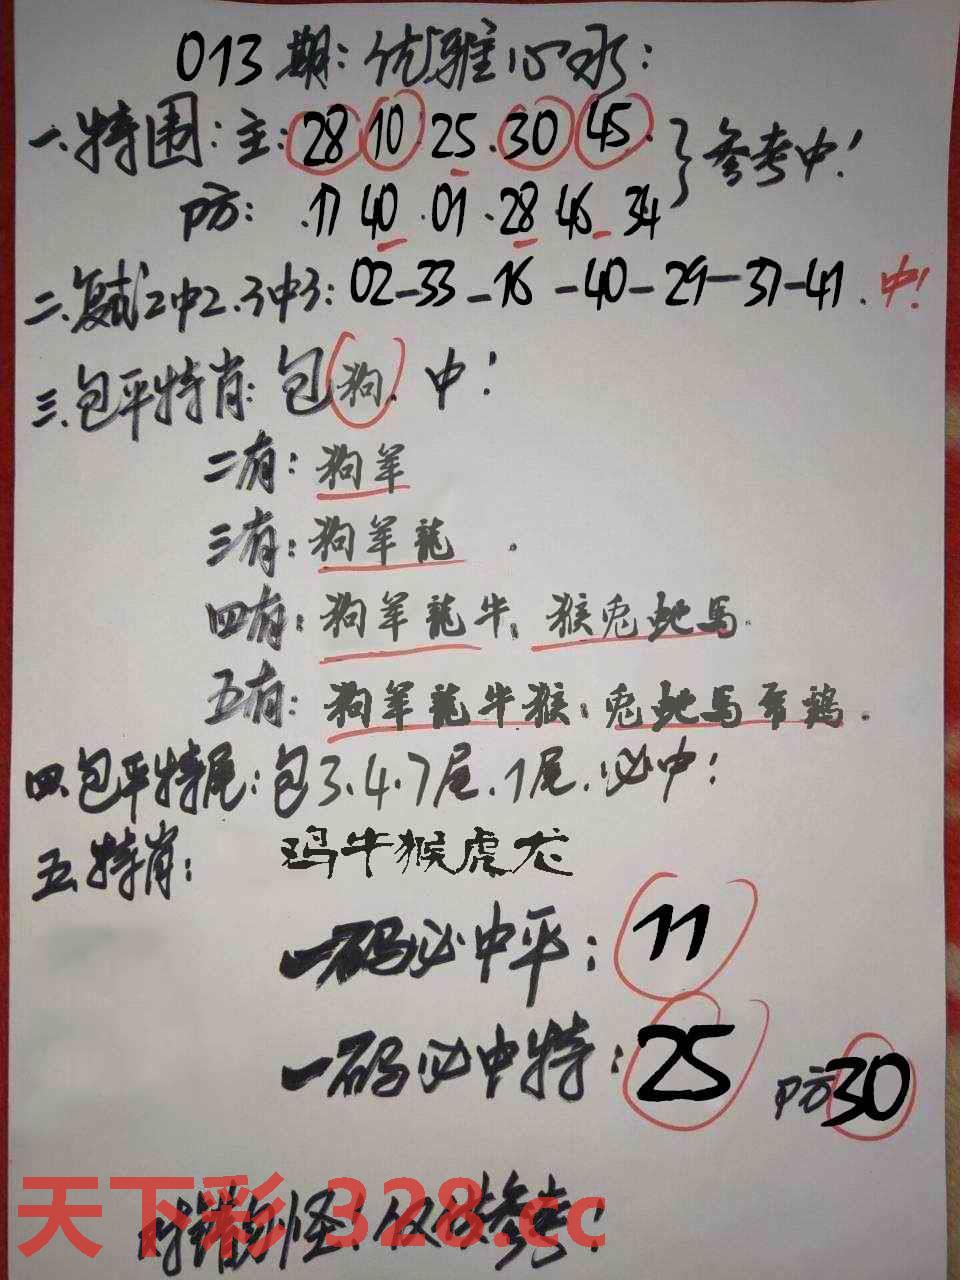 013期：优雅心水：
一.特围：主：28 10 25.30 45. 参考中！
防：.17 40.01.28 46 34
二.复式2中2.3中3：02-33-16-40-29-37-41.中！
三.包平特肖：包狗.中！
二有：狗羊
三有：狗羊龍.
四有：狗羊龍牛；猴兎蛇馬.
五有：狗羊龍牛猴；兎蛇馬 鶏.
四.包平特尾：包3.4.7尾.1尾.必中！
五.特肖：鸡牛猴虎龙
一码必中平：11
一码必中特：25 防30
对错勿怪！仅供参考！
天下彩 328.cc